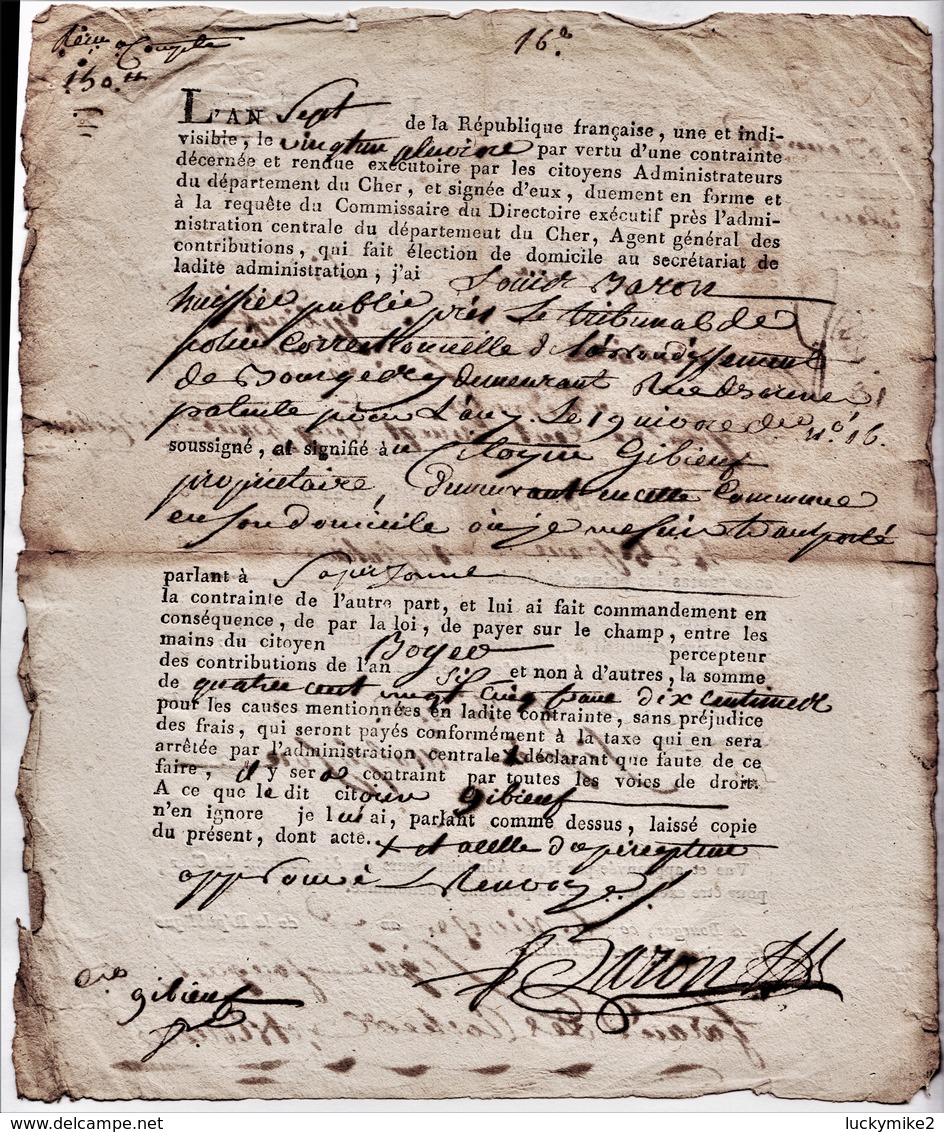 Reçu a Compte
150 ^tt
16.
L'AN Sept de la République française, une et indi-
visible, le vingtun pluviose par vertu d'une contrainte
décernée et rendue exécutoire par les citoyens Administrateurs
du département du Cher, et signée d'eux, duement en forme et
à la requête du Commissaire du Directoire exécutif près l'admi-
nistration centrale du département du Cher, Agent général des
contributions, qui fait élection de domicile au secrétariat de
ladite administration, j'ai Louis Baron
huissier public près Le tribunal de
police Correctionnelle de L'arrondissement
de Bourges y demeurant Rue
patenté pour L'an 7 Le 19 nivose der n.° 16.
soussigné, ai signifié au Citoyen Gibieuf
propriétaire, demeurant en cette Commune
en son domicile où je me suis transporté
parlant à sa personne
la contrainte de l'autre part, et lui ai fait commandement en
conséquence, de par la loi, de payer sur le champ, entre les
mains du citoyen Boyer percepteur
des contributions de l'an six et non à d'autres, la somme
de quatre cent vingt cinq franc dix centimes
pour les causes mentionnées en ladite contrainte, sans préjudice
des frais, qui seront payés conformément à la taxe qui en sera
arrêtée par l'administration centrale + déclarant que faute de ce
faire, il y sera contraint par toutes les voies de droit.
A ce que le dit citoien gibieuf
n'en ignore je lui ai, parlant comme dessus, laissé copie
du présent, dont acte. + et a celle du percepteur
approuvé Le Renvoy
Baron
gibieuf
luckymike2